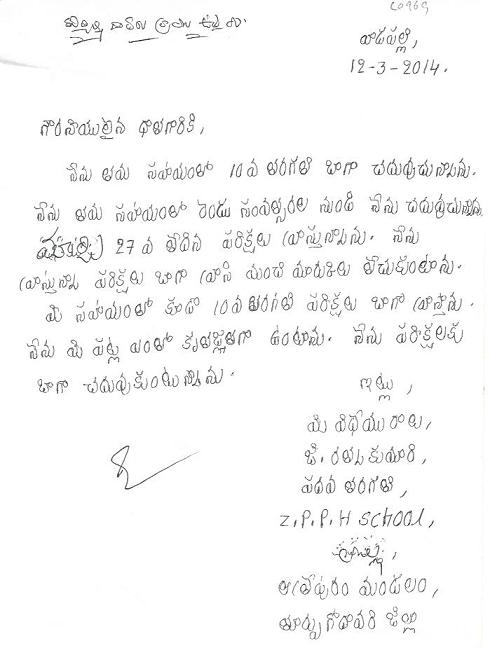 C0969
వాడపల్లి,
12-3-2014.
గౌరనీయులైన దాతగారికి,
నేను తమ సహయంతో 10వ తరగతి బాగా చదువుచున్నాను.
నేను తమ సహయంతో రెండు సంవత్సరల నుండి నేను చదువుచున్నాను.
27వ తేదిన పరిక్షలు వ్రాస్తున్నాను. నేను
వ్రాస్తున్న పరిక్షలు బాగా వ్రాసి మంచి మారుకులు తెచుకుంటాను.
మి సహాయంతో కూడా 10వ తరగతి పరిక్షలు బాగా వ్రాస్తాను.
నేను మి పట్ల ఎంతో కృతజ్ఞతగా ఉంటాను. నేను పరిక్షలకు
బాగా చదువుకుంటున్నాను.
ఇట్లు,
మి విధేయురాలు,
జి. రత్నకుమారి,
పదవ తరగతి,
Z.P.P.H SCHOOL,
ఆత్రేపురం మండలం,
తూర్పుగోదావరి జిల్లా